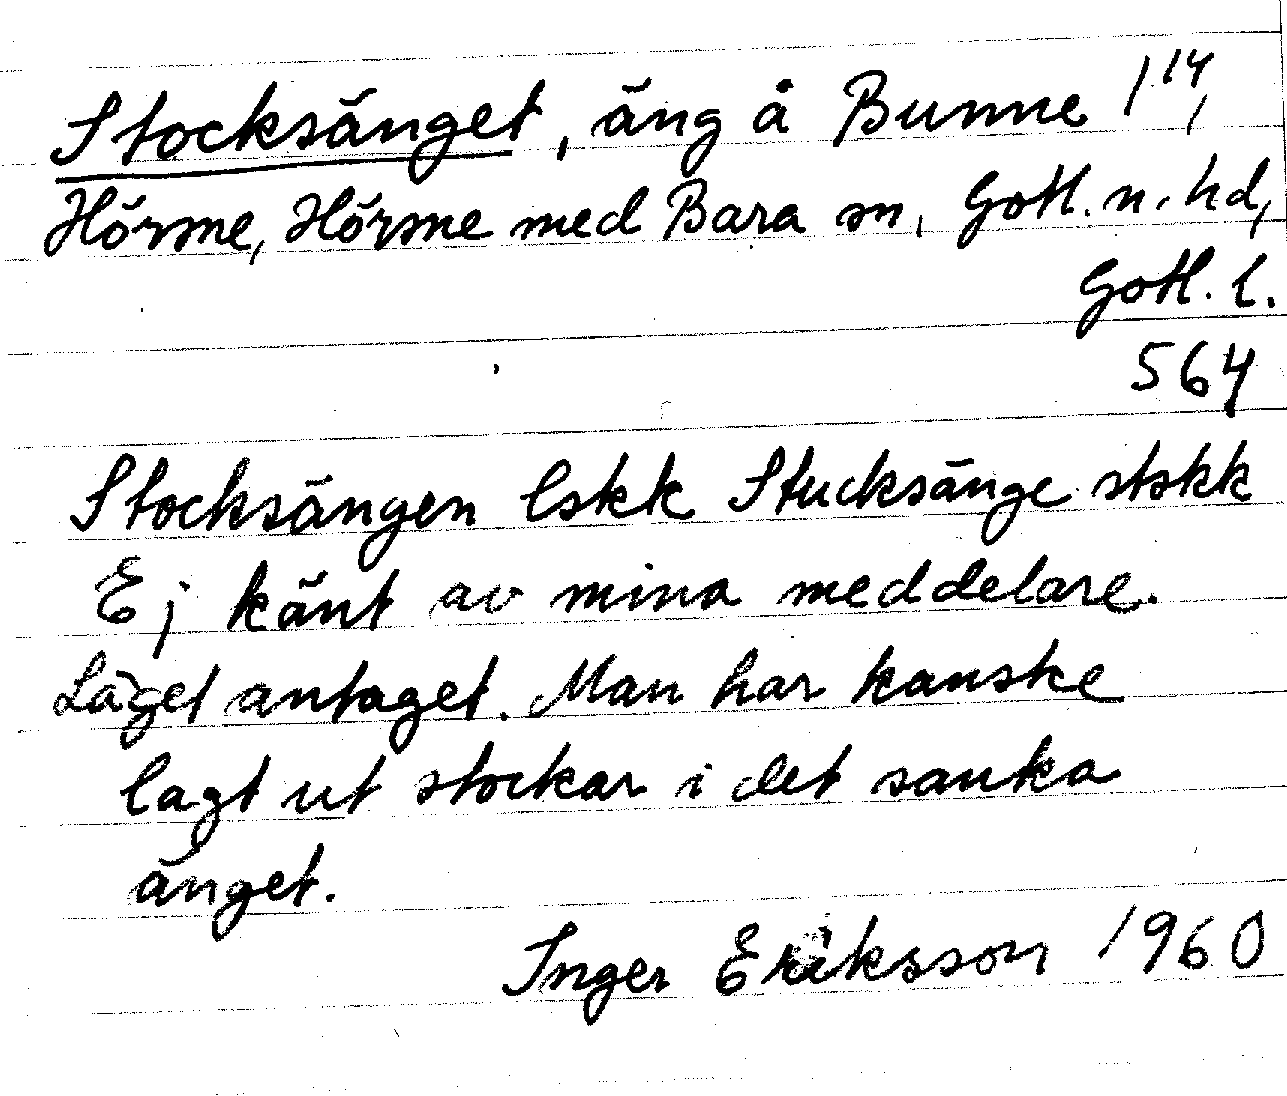 Stocksänget, äng å Bunne 1¹⁴,
Hörsne, Hörsne med Bara sn, Gotl. n. hd,
Gotl. l.
564
Stocksängen lskk Stucksänge stskk
Ej känt av mina meddelare.
Läget antaget. Man har kanske
lagt ut stockar i det sanka
änget.
Inger Eriksson 1960